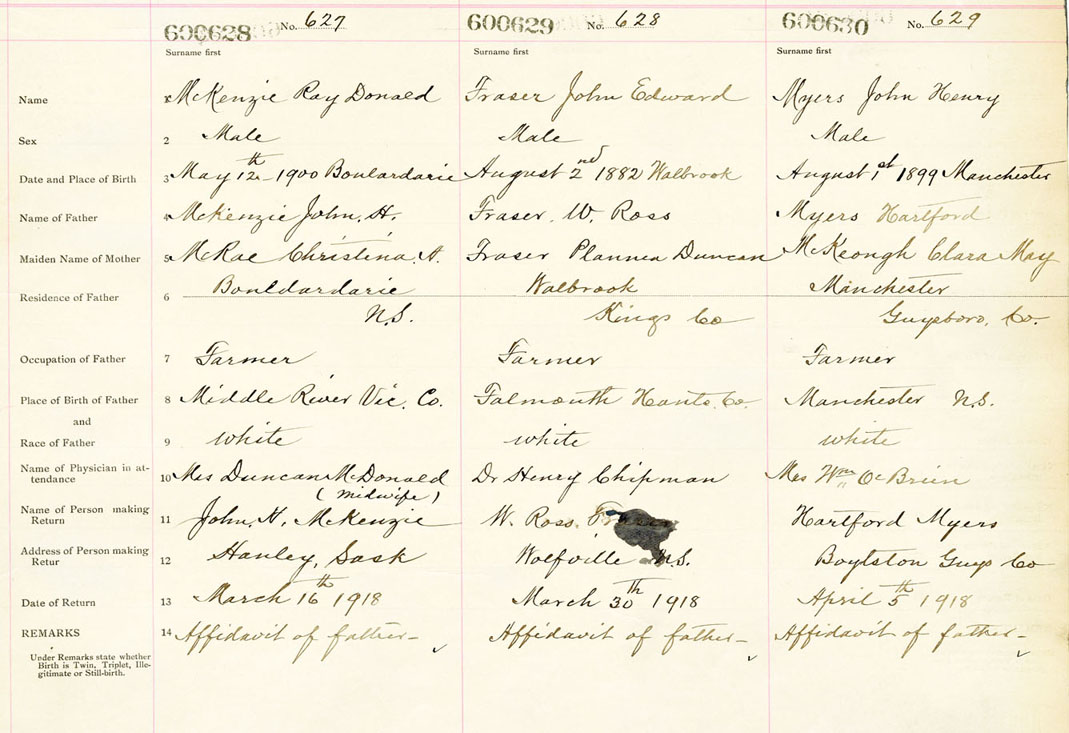 600628 No. 627 600629 No. 628 600630 No. 629
Surname first Surname first Surname first
Name 1 McKenzie Ray Donald Fraser John Edward Myers John Henry
Sex 2 Male Male Male
Date and Place of Birth 3 May 12th 1900 Boulardarie August 2nd 1882 Walbrook August 1st 1899 Manchester
Name of Father 4 McKenzie John. H. Fraser. W. Ross Myers Hartford
Maiden Name of Mother 5 McRae Christina. A. Fraser Duncan McKeough Clara May
Residence of Father 6 Bouldardarie Walbrook Manchester
N.S. Kings Co Guysboro. Co.
Occupation of Father 7 Farmer Farmer Farmer
Place of Birth of Father 8 Middle River Vic. Co. Falmouth Hants. Co. Manchester N.S.
and
Race of Father 9 white white white
Name of Physician in at-
tendance 10 Mrs Duncan McDonald Dr Henry Chipman Mrs Wm O'Brien
(midwife)
Name of Person making
Return 11 John. H. McKenzie W. Ross. Fraser Hartford Myers
Address of Person making
Retur 12 Hanley, Sask Wolfville N.S. Boylston Guys Co
Date of Return 13 March 16th 1918 March 30th 1918 April 5th 1918
REMARKS 14 Affidavit of father- Affidavit of father- Affidavit of father-
Under Remarks state whether
Birth is Twin, Triplet, Ille-
gitimate or Still-birth.